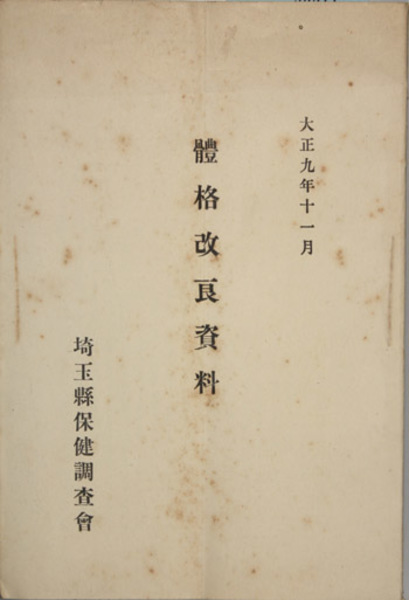 大正九年十一月
體格改良資料
埼玉縣保健調查會